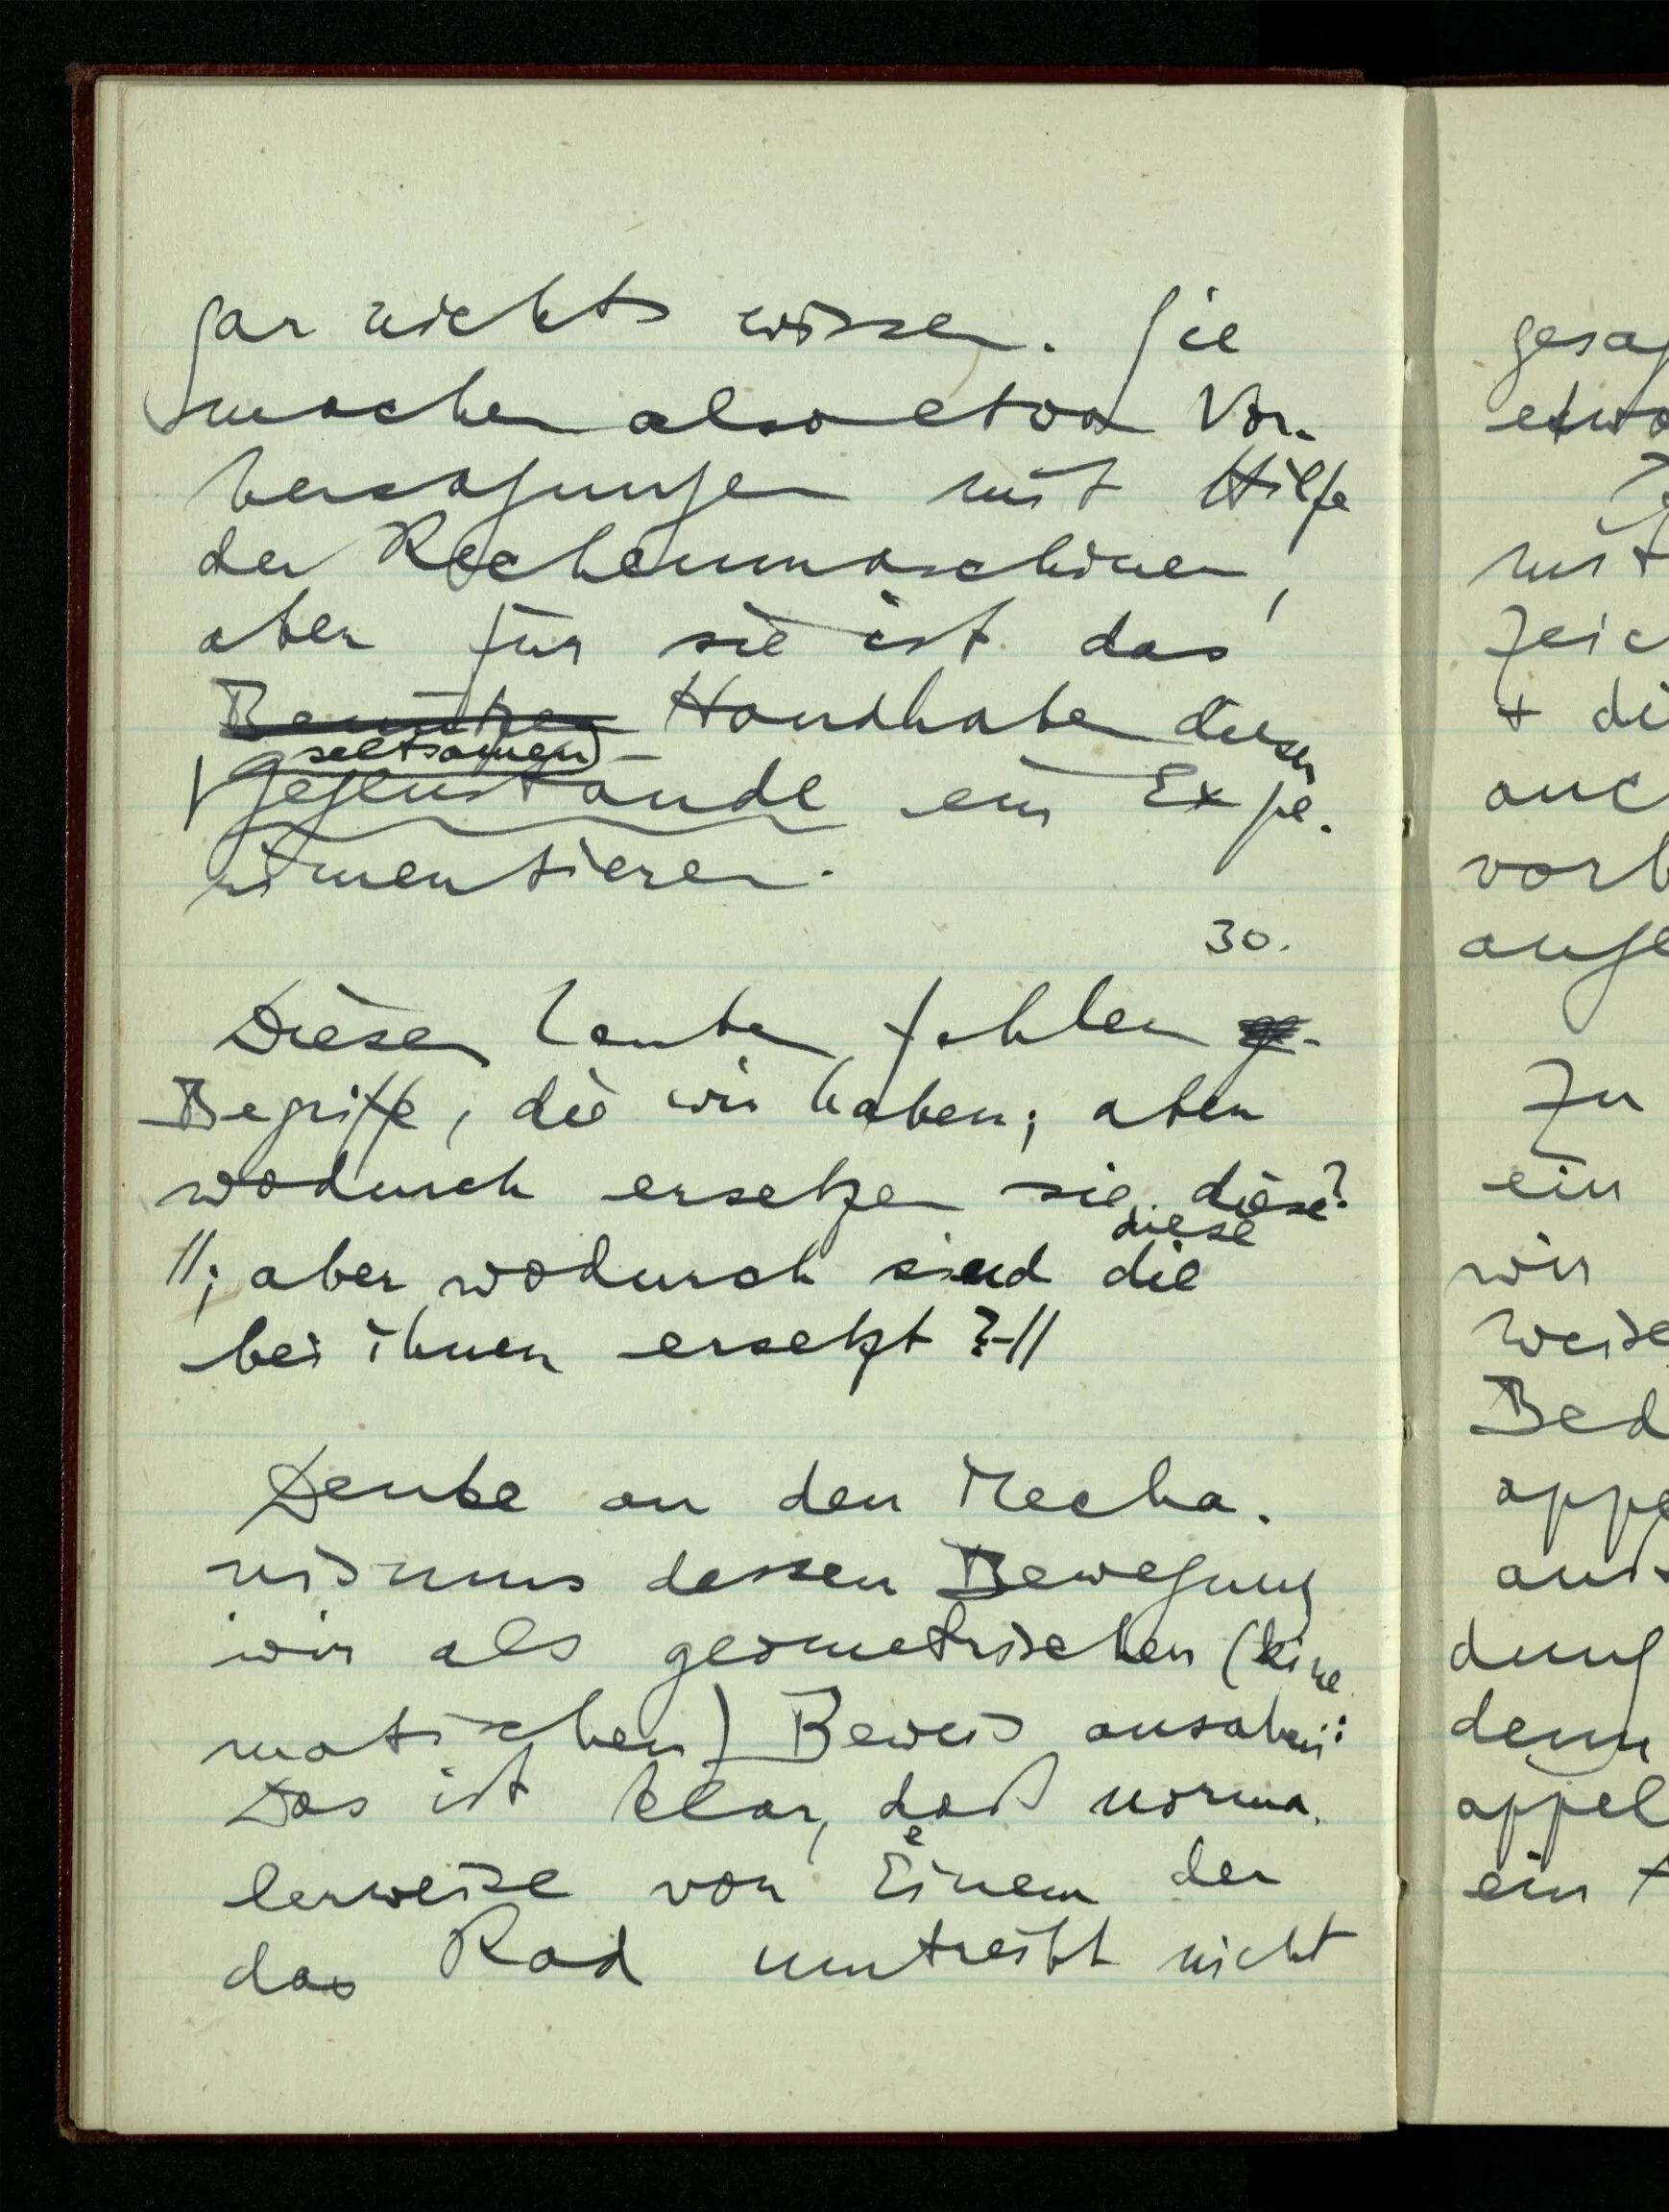 gar nichts wissen. Sie
machen also etwa Vor-
hersagungen mit Hilfe
der Rechenmaschinen,
aber für sie ist das
Benützen Handhaben dieser
seltsamen
Gegenstände ein Expe-
rimentieren.
30.
Diesen Leuten fehlen
Begriffe, die wir haben; aber
wodurch ersetzen sie diese?
diese
//; aber wodurch sind die
bei ihnen ersetzt?//
Denke an den Mecha-
nismus dessen Bewegung
wir als geometrischen (kine-
matischen) Beweis ansahen:
Das ist klar, daß norma-
e
lerweise von Einem der
das Rad umtreibt nicht
gesag
etwa
mit
Zeic
+ di
auc
vorh
ange
Zu
ein
wir
weise
Bed
appe
dung
denn
appel
ein